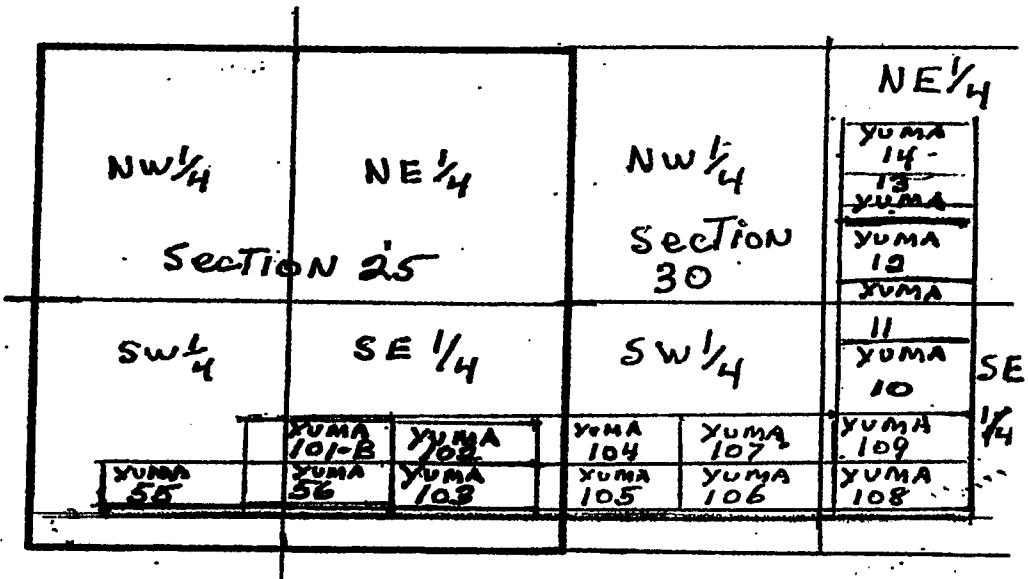 NE 1/4
YUMA
14
13
YUMA
NW 1/4
NE 1/4
NW 1/4
Section 25
Section
30
YUMA
12
YUMA
11
SW 1/4
SE 1/4
SW 1/4
YUMA
10
SE
1/4
YUMA
101-B
YUMA
102
YUMA
104
YUMA
107
YUMA
109
YUMA
55
YUMA
56
YUMA
103
YUMA
105
YUMA
106
YUMA
108